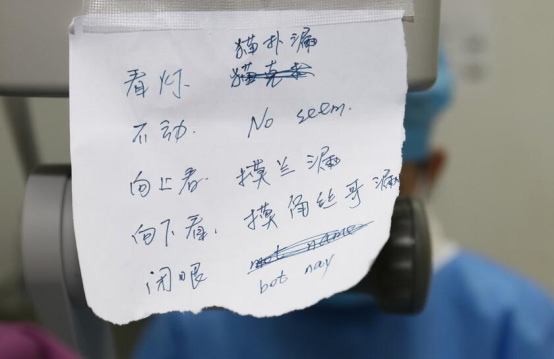 猫扑漏
看灯. 猫克未
不动. No seem.
向上看. 摸兰漏
向下看. 摸角丝哥漏
闭眼 not name
bot nay